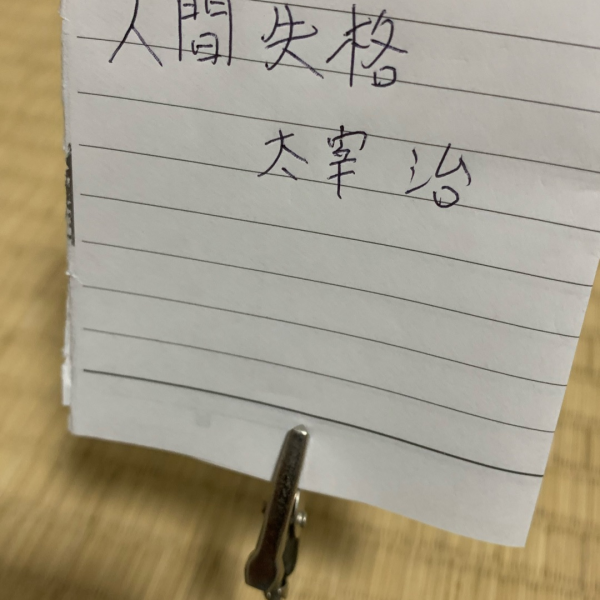 人間失格
太宰 治